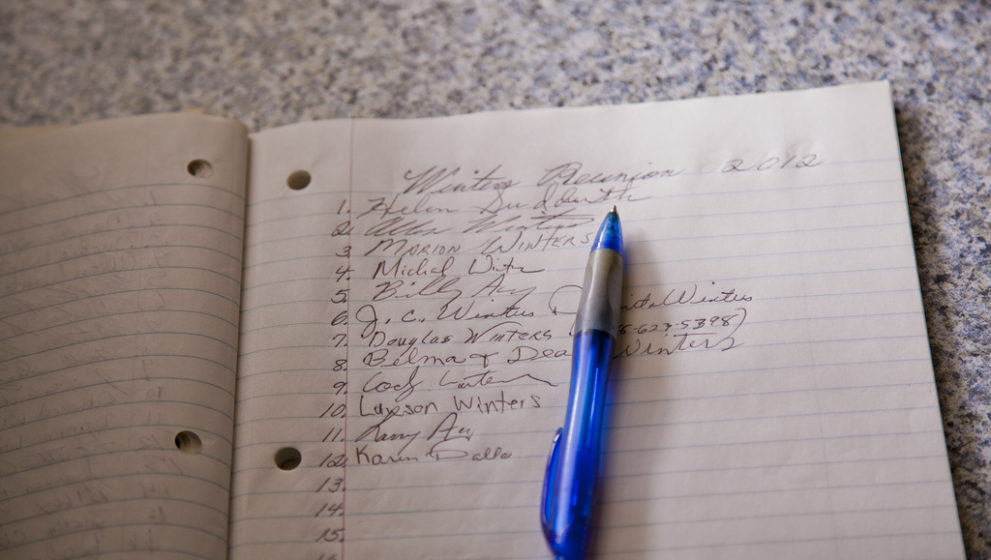 Winters Reunion 2012
1. Helen Sudduth
2. Allen Winters
3. MARION WINTERS
4. Michal
5. Billy Ary
6. J. C. Winters Winters
7. Douglas Winters 8-627-5398)
8. Belma & Dea Winters
9. Cody
10. Lawson Winters
11. Larry
12. Karen
13.
14.
15.